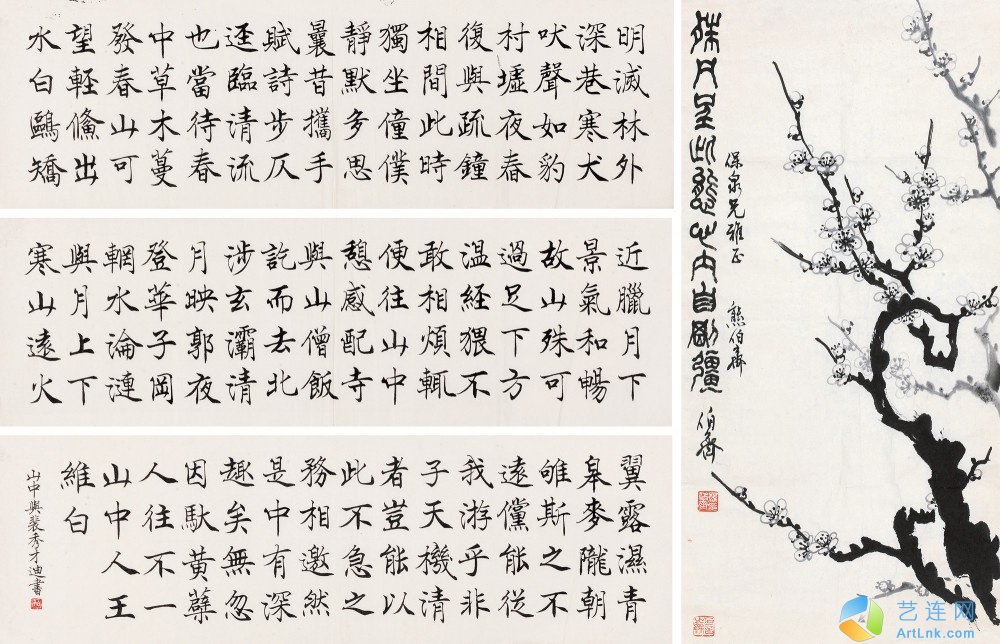 明滅林外
深巷寒犬
吠聲如豹
村墟夜舂
復與疏鐘
相間此時
獨坐僮僕
靜默多思
曩昔攜手
賦詩步仄
逕臨清流
也當待春
中草木蔓
發春山可
望輕鯈出
水白鷗矯
近臘月下
景氣和暢
故山殊可
過足下方
温經猥不
敢相煩輒
便往山中
憩感配寺
與山僧飯
訖而去北
涉玄灞清
月映郭夜
登華子岡
輞水淪漣
與月上下
寒山遠火
翼露濕青
皋麥隴朝
雊斯之不
遠儻能從
我游乎非
子天機清
者豈能以
此不急之
務相邀然
是中有深
趣矣無忽
因馱黃蘗
人往不一
山中人王
維白
山中與裴秀才迪書
心内自剛彊
伯齊
保泉兄雅正 熊伯齊
艺连网
ArtLnk.com